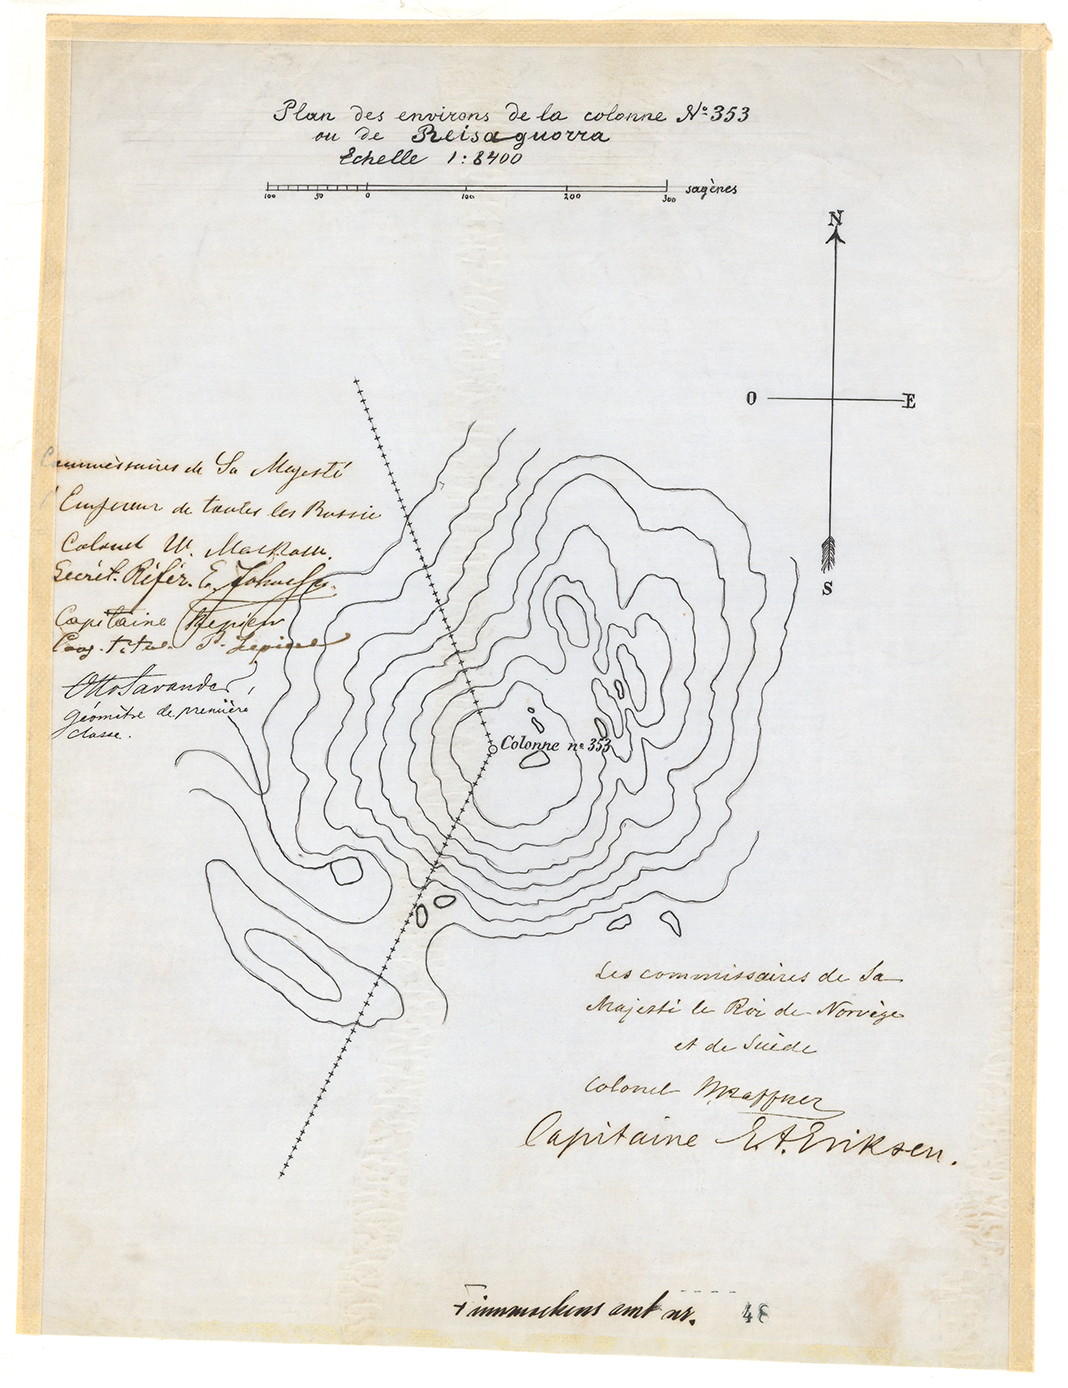 Plan des environs de la colonne No 353
ou de Reisaguorra
Echelle 1:8400
100 50 0 100 200 300 sagènes
N
O E
S
Commissaires de Sa Majesté
l'Empereur de toutes les Russie
Colonel W.
Secrét. Référ. E.
Capitaine
P.
Otto Savander,
géomètre de première
classe.
Colonne no 353
Les commissaires de Sa
Majesté le Roi de Norvège
et de Suède
Colonel
Capitaine E.A. Eriksen.
Finmarkens amt nr. 48